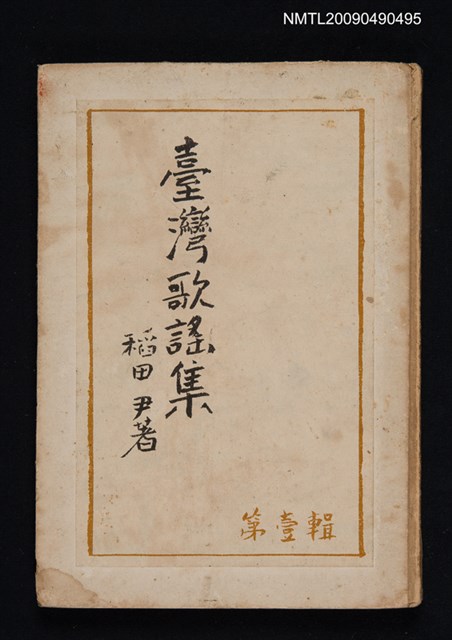 NMTL20090490495
臺灣歌謠集
稻田尹著
第壹輯